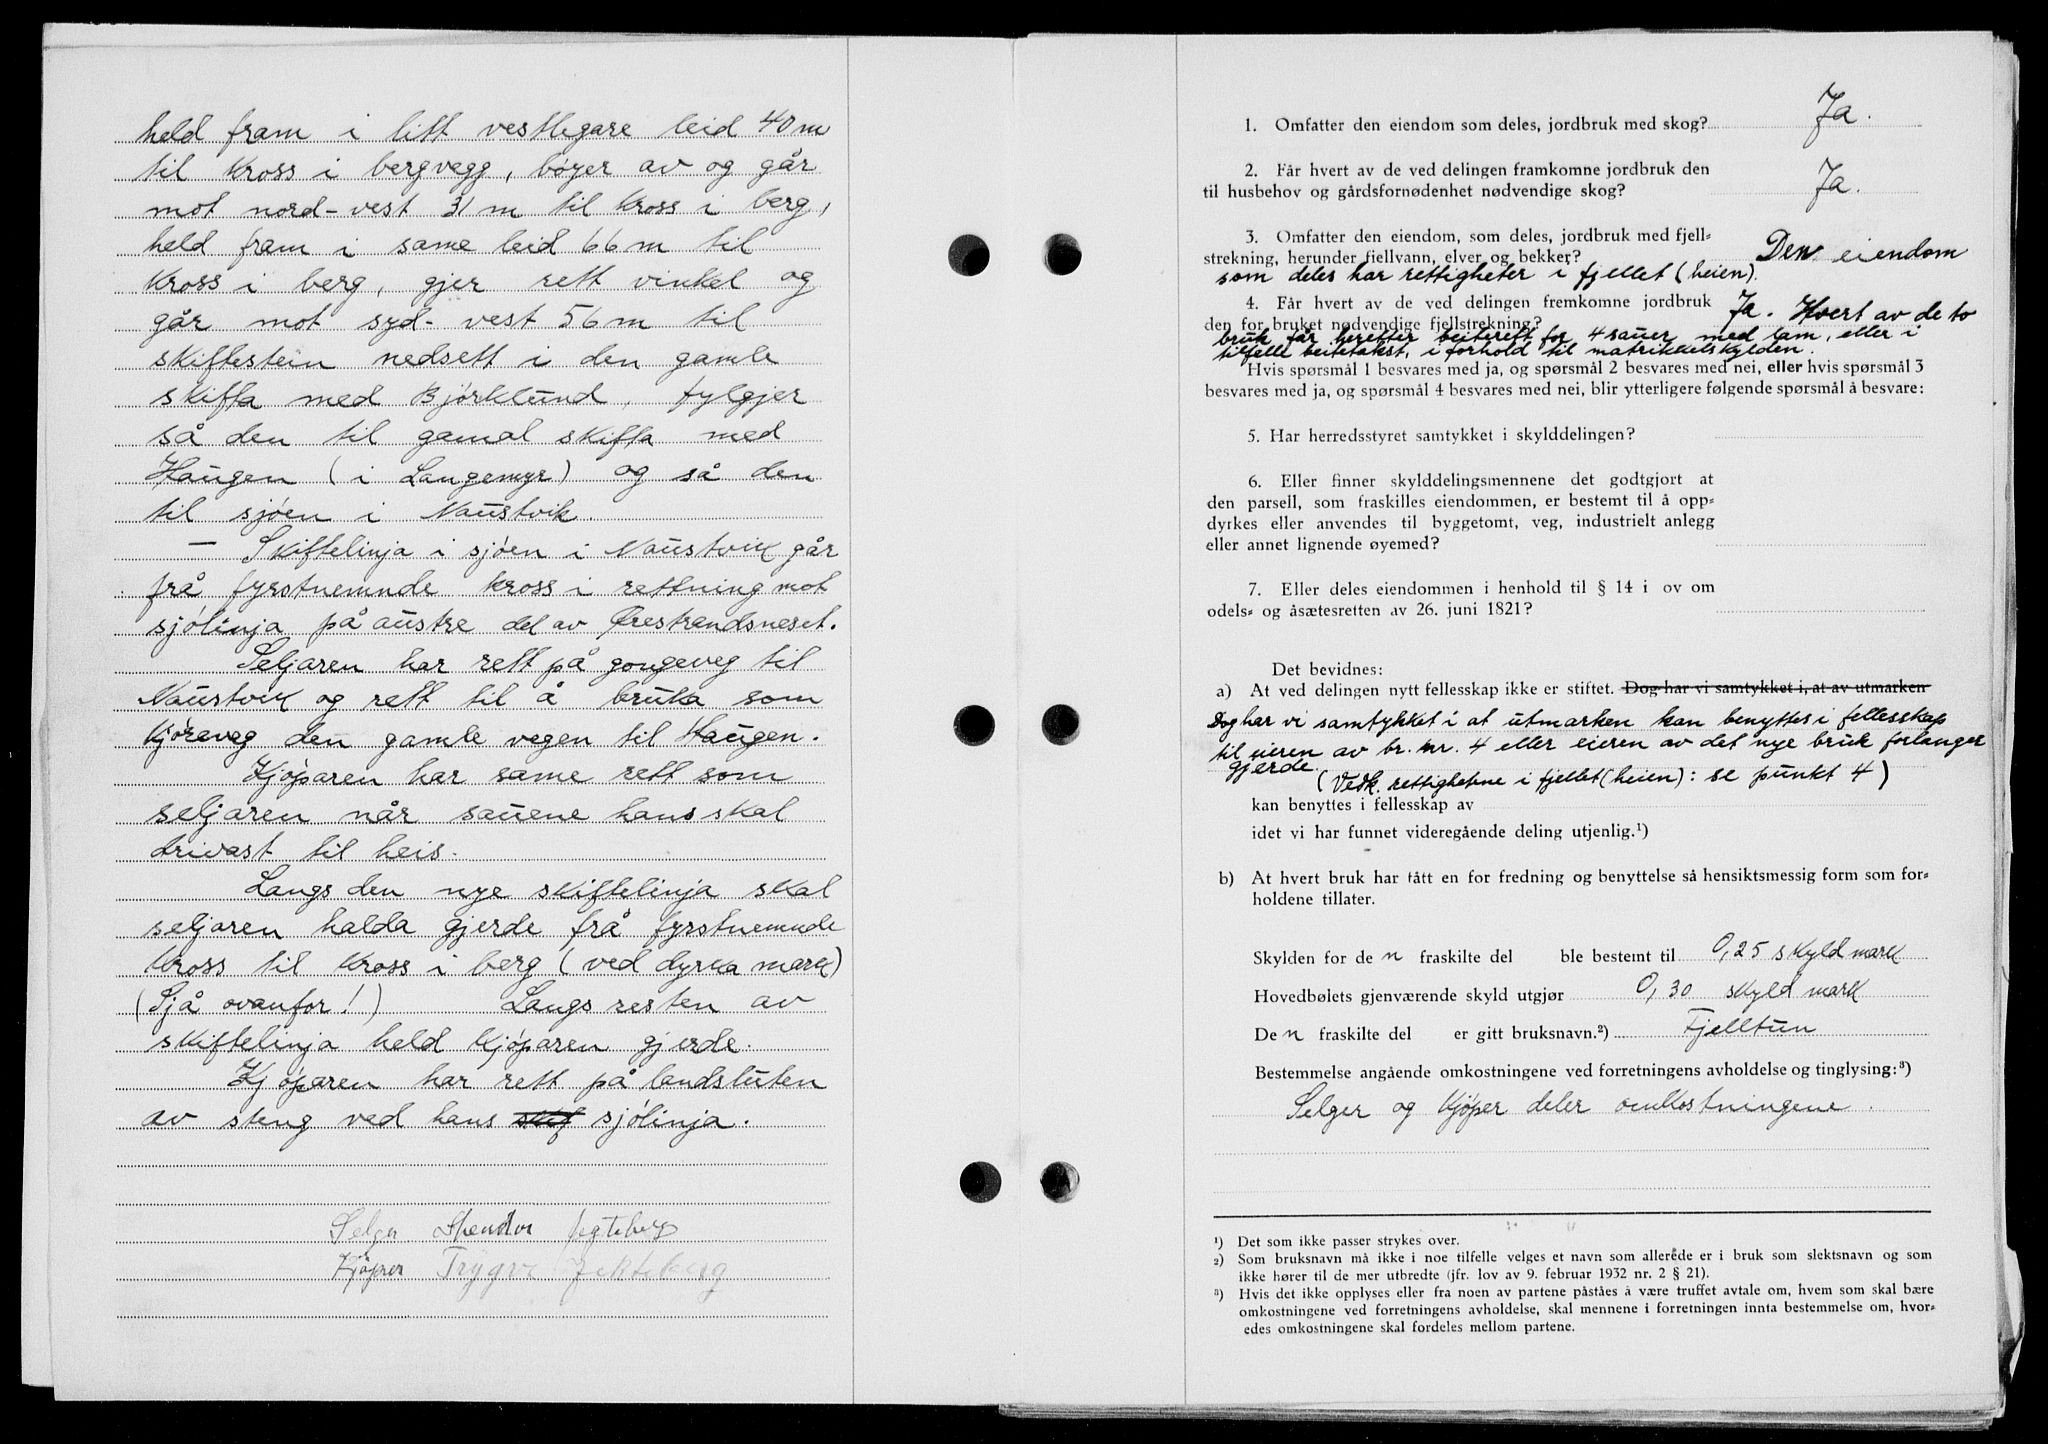 held fram i litt vestlegare leid 40 m
til kross i bergvegg, bøyer av og går
mot nord-vest 31 m til kross i berg,
held fram i same leid 66 m til
kross i berg, gjer rett vinkel og
går mot syd-vest 56 m til
skiftestein nedsett i den gamle
skifta med Bjørklund, fylgjer
så den til gamal skifta med
Haugen (i Langemyr) og så den
til sjøen i Naustvik.
— Skiftelinja i sjøen i Naustvik går
frå fyrstnemnde kross i rettning mot
sjølinja på austre del av Ørestrandsneset.
Seljaren har rett på gongeveg til
Naustvik og rett til å bruka som
kjøreveg den gamle vegen til Haugen.
Kjøparen har same rett som
seljaren når sauene hans skal
drivast til heis.
Langs den nye skiftelinja skal
seljaren halda gjerde frå fyrstnemnde
kross til kross i berg (ved dyrka mark)
(Sjå ovanfor!) Langs resten av
skiftelinja held kjøparen gjerde.
Kjøparen har rett på landsluten
av steng ved hans skif sjølinja.
Selger
Kjøper Trygve Jekteberg
1. Omfatter den eiendom som deles, jordbruk med skog? Ja.
2. Får hvert av de ved delingen framkomne jordbruk den
til husbehov og gårdsfornødenhet nødvendige skog? Ja.
3. Omfatter den eiendom, som deles, jordbruk med fjell=
strekning, herunder fjellvann, elver og bekker? Den eiendom
som deles har rettigheter i fjellet (heien).
4. Får hvert av de ved delingen fremkomne jordbruk
den for bruket nødvendige fjellstrekning? Ja. Hvert av de to
bruk får heretter beiterett for 4 sauer med lam, eller i
tilfelle beitetakst, i forhold til matrikkelskylden.
Hvis spørsmål 1 besvares med ja, og spørsmål 2 besvares med nei, eller hvis spørsmål 3
besvares med ja, og spørsmål 4 besvares med nei, blir ytterligere følgende spørsmål å besvare:
5. Har herredsstyret samtykket i skylddelingen?
6. Eller finner skylddelingsmennene det godtgjort at
den parsell, som fraskilles eiendommen, er bestemt til å opp=
dyrkes eller anvendes til byggetomt, veg, industrielt anlegg
eller annet lignende øyemed?
7. Eller deles eiendommen i henhold til § 14 i ov om
odels= og åsætesretten av 26. juni 1821?
Det bevidnes:
a) At ved delingen nytt fellesskap ikke er stiftet. Dog har vi samtykket i, at av utmarken
Dog har vi samtykket i at utmarken kan benyttes i fellesskap
til eieren av br. nr. 4 eller eieren av det nye bruk forlanger
gjerde.
(Vedk. rettighetene i fjellet (heien): se punkt 4)
kan benyttes i fellesskap av
idet vi har funnet videregående deling utjenlig.¹)
b) At hvert bruk har fått en for fredning og benyttelse så hensiktsmessig form som for=
holdene tillater.
Skylden for de n fraskilte del ble bestemt til 0,25 skyldmark
Hovedbølets gjenværende skyld utgjør 0,30 skyld mark
De n fraskilte del er gitt bruksnavn.²) Fjelltun
Bestemmelse angående omkostningene ved forretningens avholdelse og tinglysing:³)
Selger og kjøper deler omkostningene.
¹) Det som ikke passer strykes over.
²) Som bruksnavn må ikke i noe tilfelle velges et navn som allerede er i bruk som slektsnavn og som
ikke hører til de mer utbredte (jfr. lov av 9. februar 1932 nr. 2 § 21).
³) Hvis det ikke opplyses eller fra noen av partene påståes å være truffet avtale om, hvem som skal bære
omkostningene ved forretningens avholdelse, skal mennene i forretningen innta bestemmelse om, hvor=
edes omkostningene skal fordeles mellom partene.